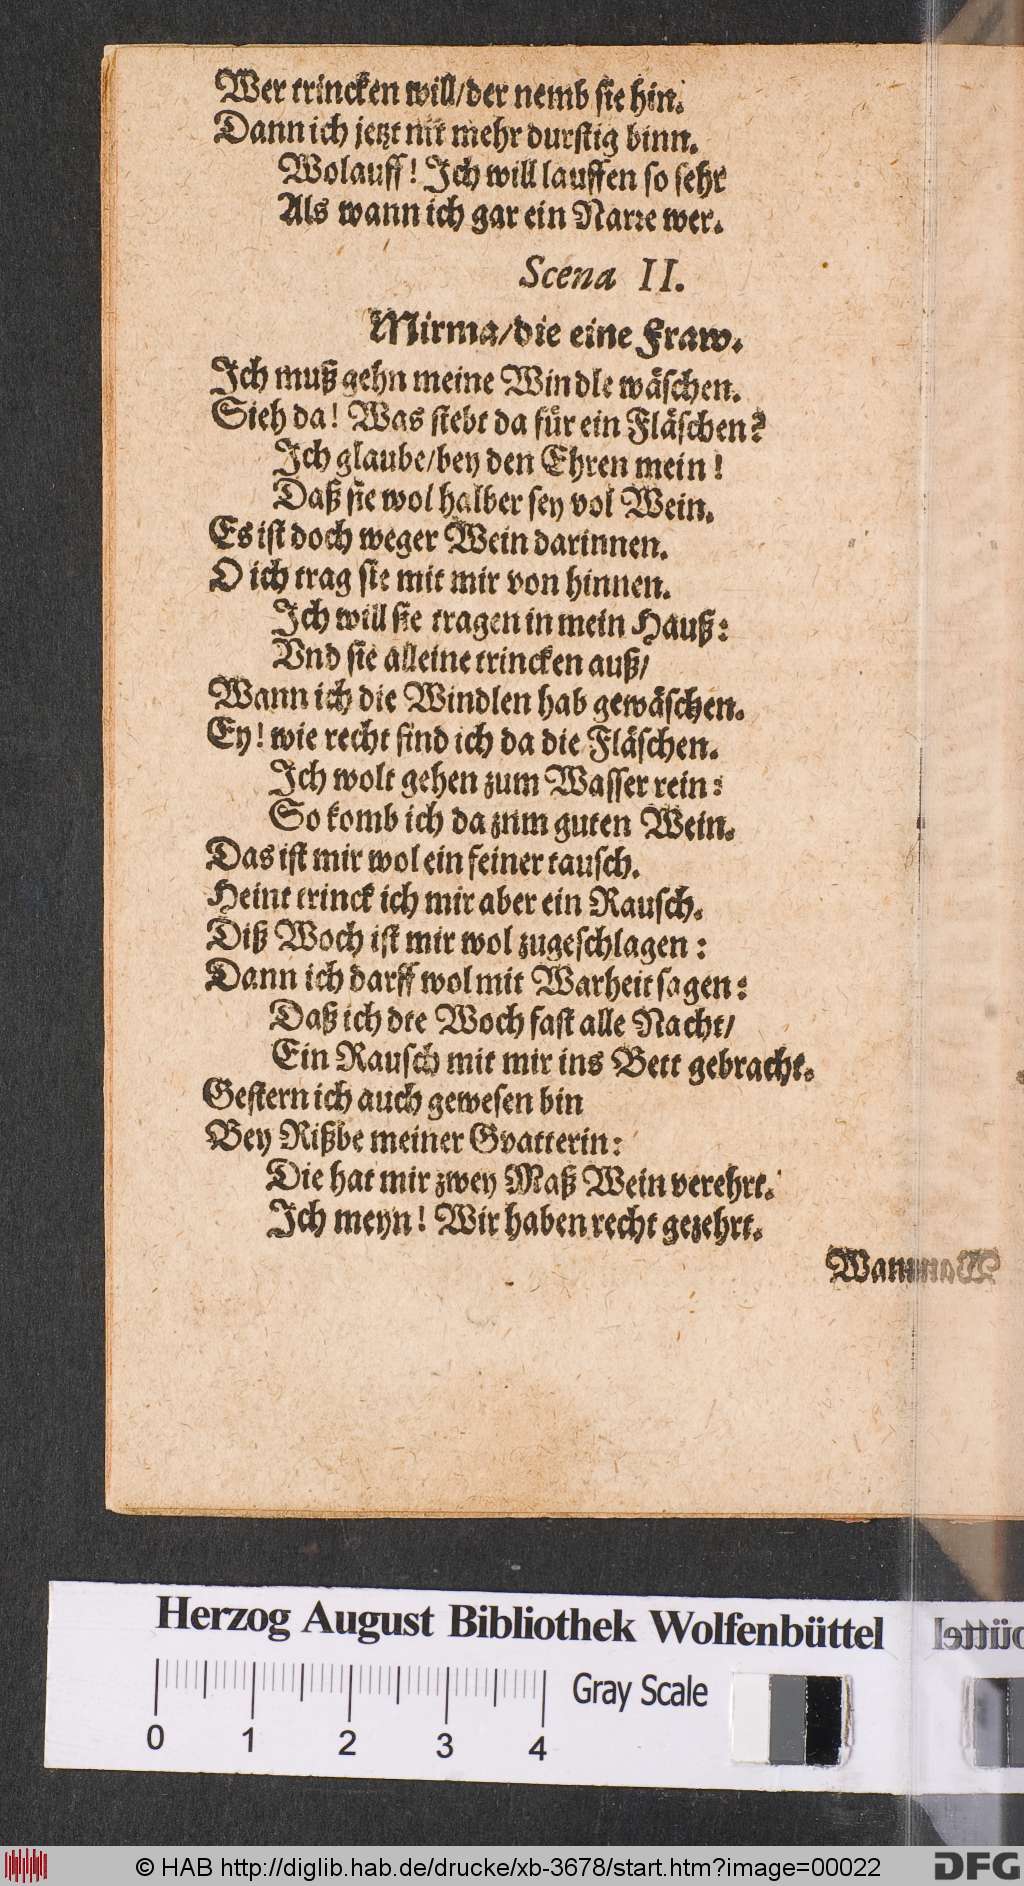 Wer trincken will/der nemb sie hin.
Dann ich jetzt nit mehr durstig binn.
Wolauff! Ich will lauffen so sehr
Als wann ich gar ein Narre wer.
Scena II.
Mirma/die eine Fraw.
Ich muß gehn meine Windle wäschen.
Sieh da! Was stebt da für ein Fläschen?
Ich glaube/bey den Ehren mein!
Daß sie wol halber sey vol Wein.
Es ist doch weger Wein darinnen.
O ich trag sie mit mir von hinnen.
Ich will sie tragen in mein Hauß:
Vnd sie alleine trincken auß/
Wann ich die Windlen hab gewäschen.
Ey! wie recht find ich da die Fläschen.
Ich wolt gehen zum Wasser rein:
So komb ich da zum guten Wein.
Das ist mir wol ein feiner tausch.
Heint trinck ich mir aber ein Rausch.
Diß Woch ist mir wol zugeschlagen:
Dann ich darff wol mit Warheit sagen:
Daß ich dte Woch fast alle Nacht/
Ein Rausch mit mir ins Bett gebracht.
Gestern ich auch gewesen bin
Bey Rißbe meiner Gvatterin:
Die hat mir zwey Maß Wein verehrt.
Ich meyn! Wir haben recht gezehrt.
Herzog August Bibliothek Wolfenbüttel
Gray Scale
0 1 2 3 4
© HAB http://diglib.hab.de/drucke/xb-3678/start.htm?image=00022
DFG